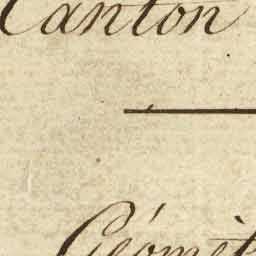 Canton
Géomèt